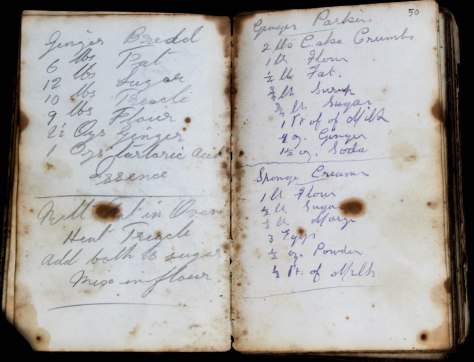 Ginger Bredd
6 lbs Fat
12 lbs Sugar
10 lbs Treacle
9 lbs Flour
2½ Ozs Ginger
1 Ozs Tartaric Acid
Essence
Melt Fat in Oven
Heat Treacle
Add both to sugar
Mise in flour
50
Ginger Parkin
2 lbs Cake Crumbs
1 lb Flour
½ lb Fat.
lb Syrup
lb Sugar
1 Pt of of Milk
oz. Ginger
1½ oz. Soda
Sponge Creams
1 lb Flour
½ lb Sugar
½ lb Marge
3 Eggs
½ oz. Powder
½ Pt. of Milk